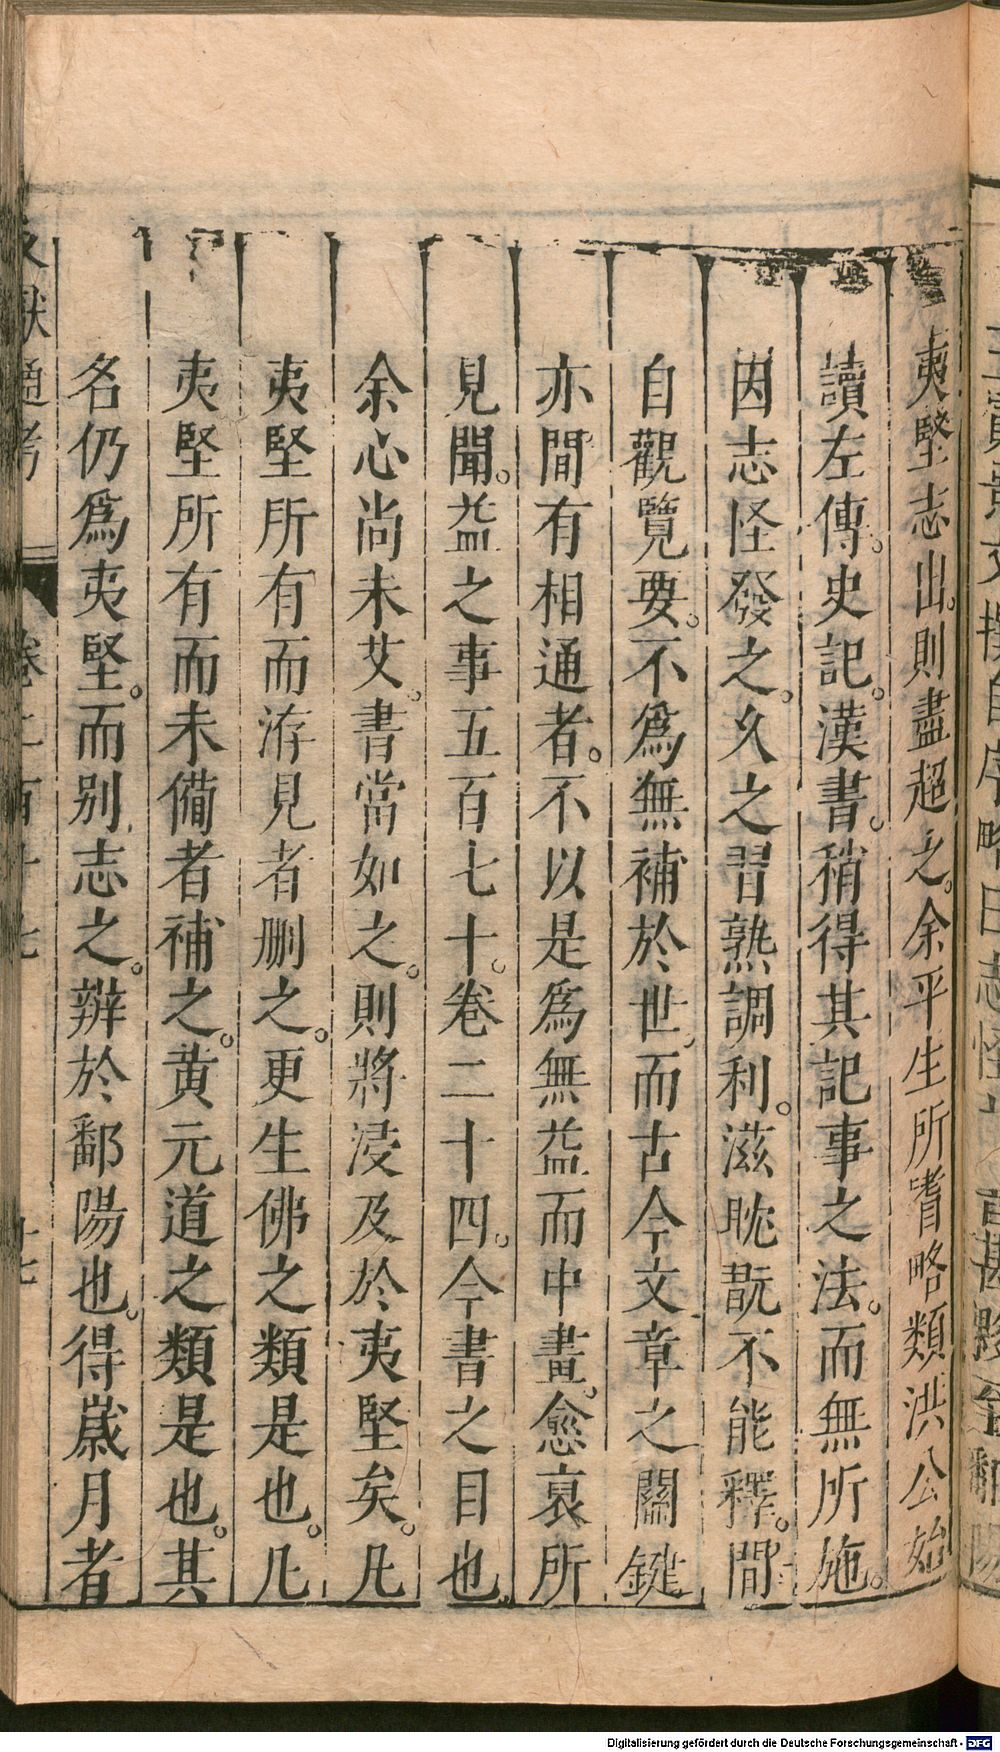 夷堅志出。則盡超之。余平生所嗜略類洪公始
讀左傳。史記。漢書。稍得其記事之法。而無所施。
因志怪發之。久之習熟調利。滋耽翫不能釋。間
自觀覽要。不爲無補於世。而古今文章之關鍵
亦間有相通者。不以是爲無益而中畫。愈裒所
見聞。益之事五百七十。卷二十四。今書之目也。
余心尚未艾。書當如之。則將浸及於夷堅矣。凡
夷堅所有而洊見者刪之。更生佛之類是也。凡
夷堅所有而未備者補之。黄元道之類是也。其
名仍爲夷堅。而别志之。辨於鄱陽也。得歲月者
文獻通考
卷二百十七
十七
Digitalisierung gefördert durch die Deutsche Forschungsgemeinschaft - DFG